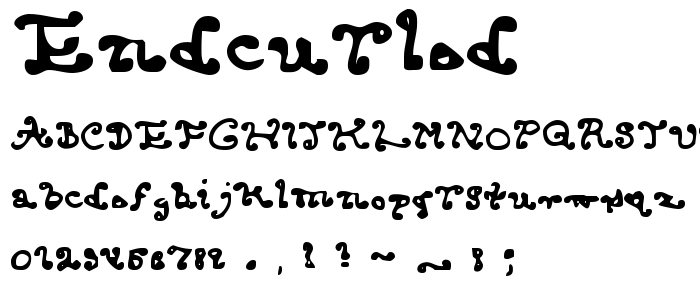 Endcurlod
ABCDEFGHIJKLMNOPQRSTU
abcdofghijklmnopqrstur
0123456789 . , ! ? ~ ~ ! ;